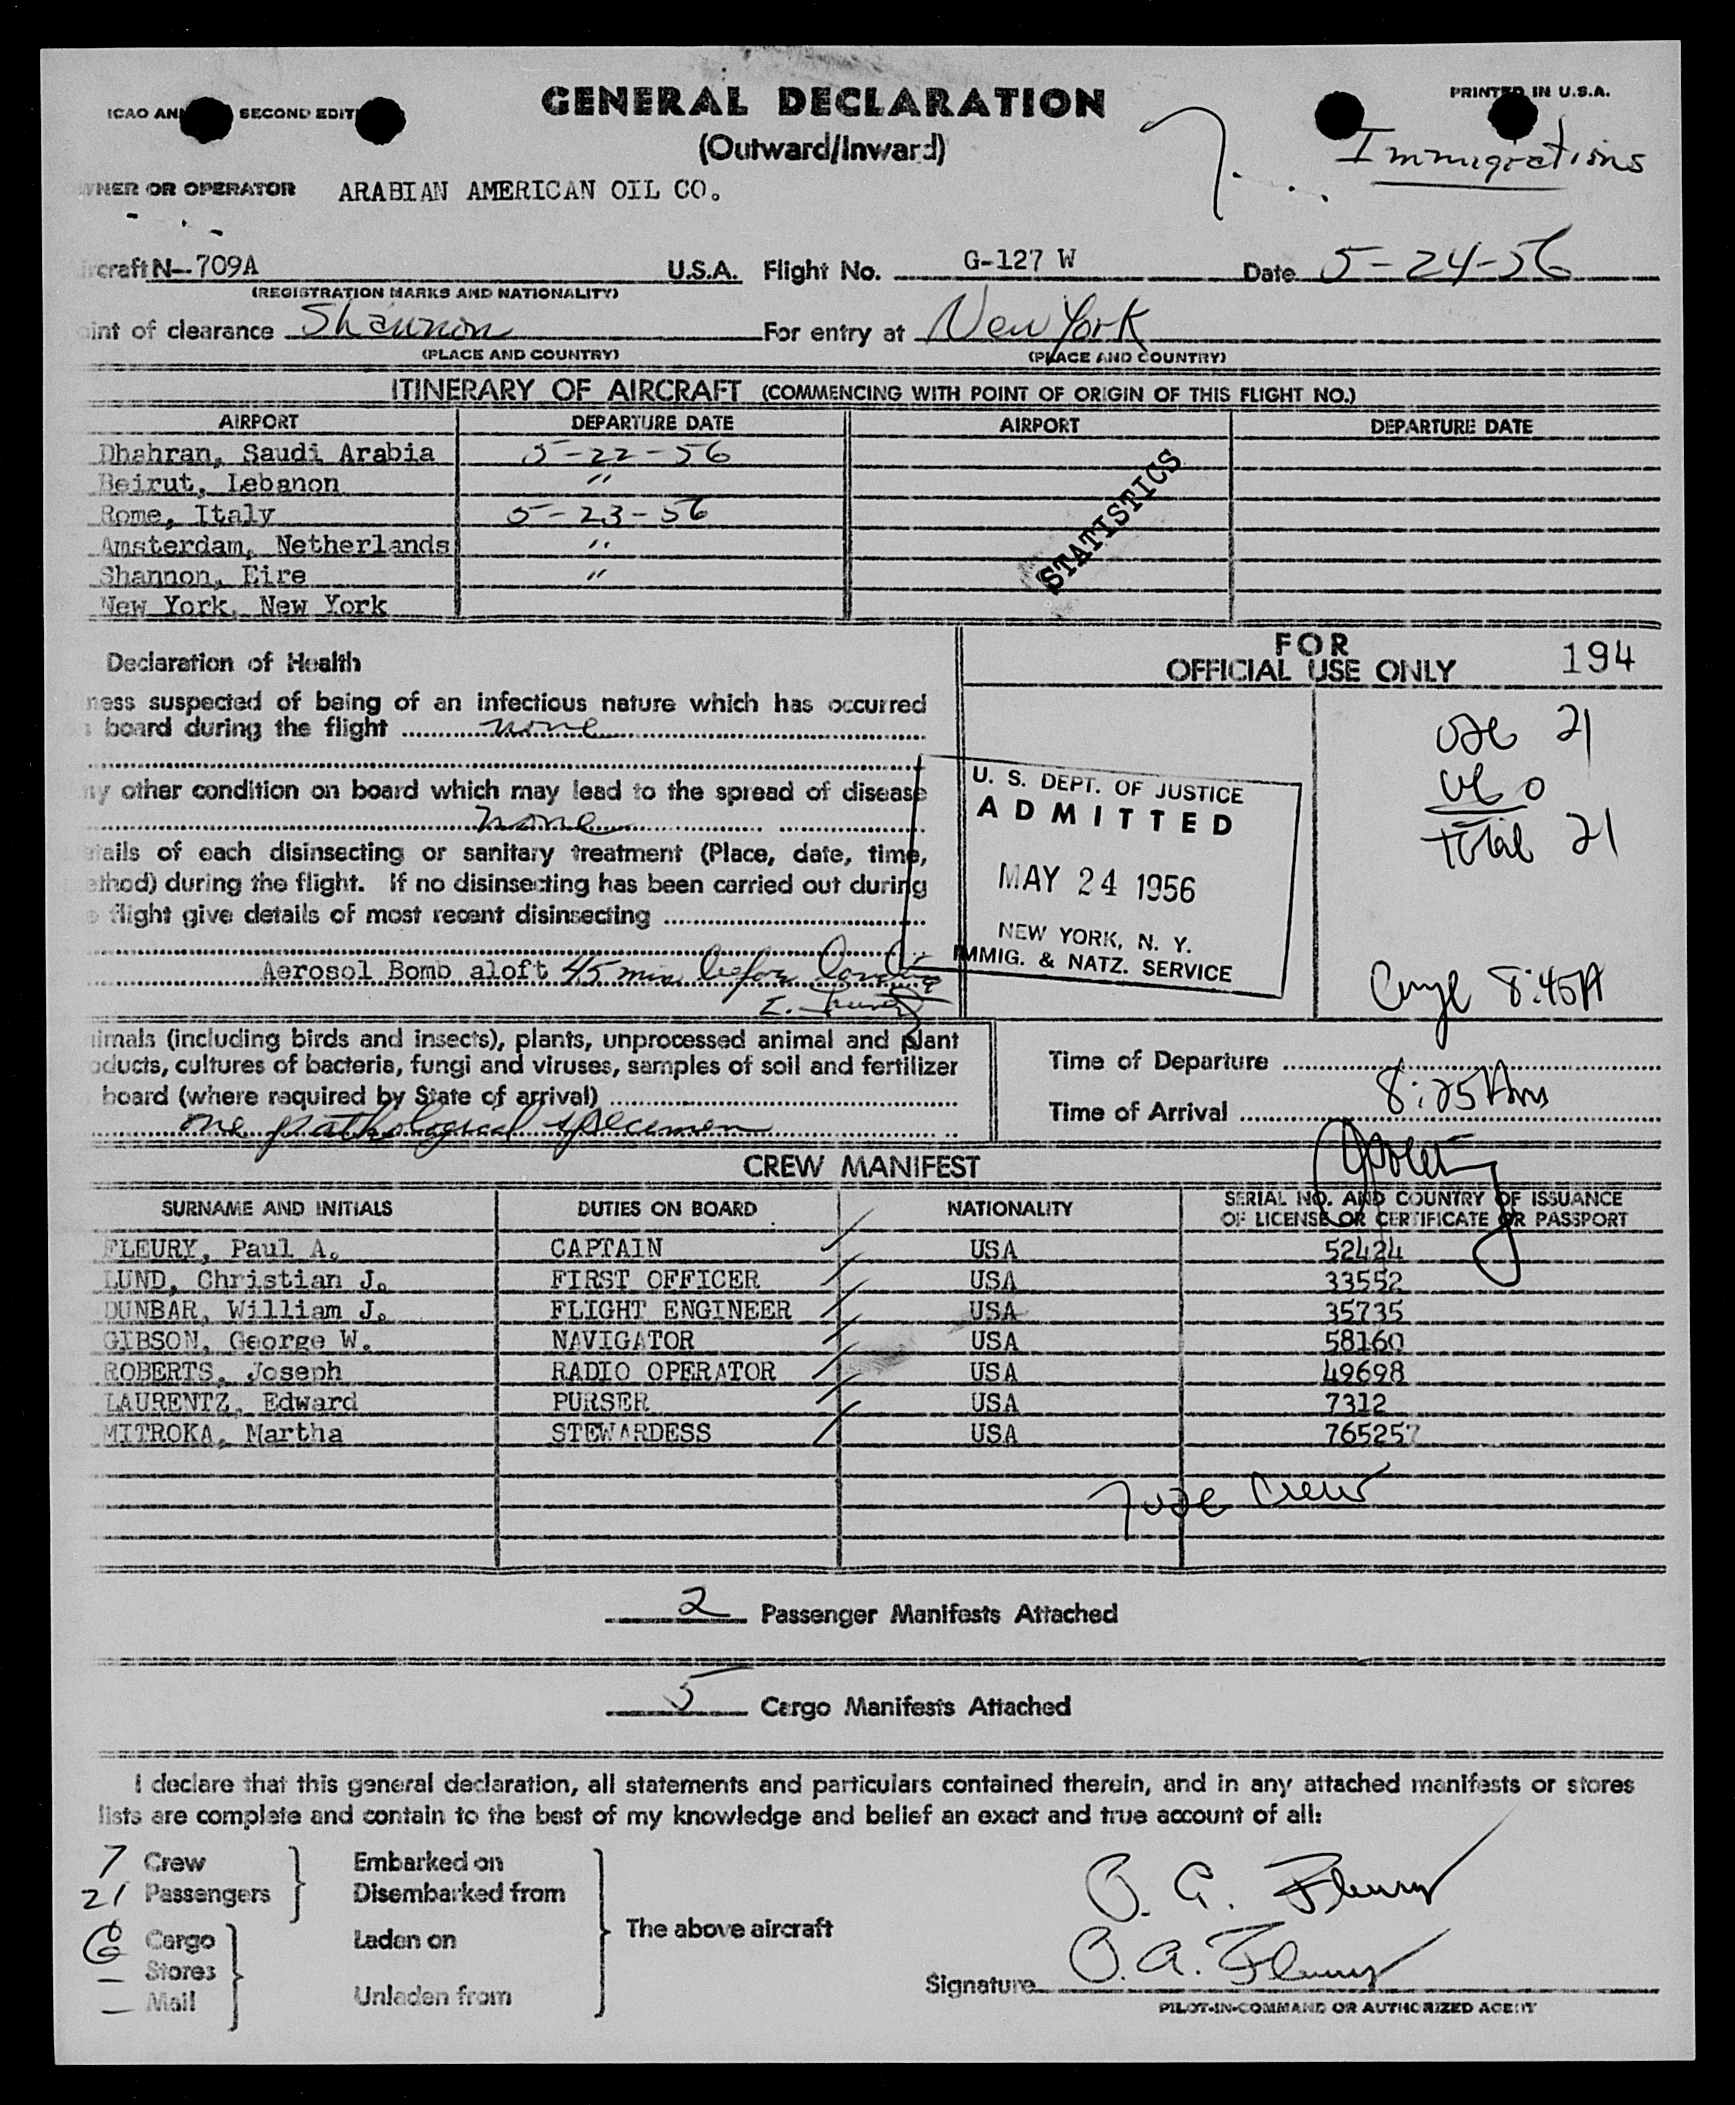 GENERAL DECLARATION
(Outward/Inward)
ICAO SECOND
PRINTED IN U.S.A.
Immigrations
OWNER OR OPERATOR ARABIAN AMERICAN OIL CO.
Aircraft N-709A U.S.A. Flight No. G-127 W Date 5-24-56
(REGISTRATION MARKS AND NATIONALITY)
Point of clearance Shannon For entry at New York
(PLACE AND COUNTRY) (PLACE AND COUNTRY)
ITINERARY OF AIRCRAFT (COMMENCING WITH POINT OF ORIGIN OF THIS FLIGHT NO.)
AIRPORT DEPARTURE DATE AIRPORT DEPARTURE DATE
Dhahran, Saudi Arabia 5-22-56
Beirut, Lebanon "
Rome, Italy 5-23-56
Amsterdam, Netherlands "
Shannon, Eire "
New York, New York
STATISTICS
Declaration of Health
ness suspected of being of an infectious nature which has occurred
board during the flight none
ny other condition on board which may lead to the spread of disease
none
etails of each disinsecting or sanitary treatment (Place, date, time,
ethod) during the flight. If no disinsecting has been carried out during
flight give details of most recent disinsecting
Aerosol Bomb aloft 45 min before Landing
FOR
OFFICIAL USE ONLY 194
USC 21
0
total 21
U. S. DEPT. OF JUSTICE
ADMITTED
MAY 24 1956
NEW YORK, N. Y.
IMMIG. & NATZ. SERVICE
8:45A
nimals (including birds and insects), plants, unprocessed animal and plant
oducts, cultures of bacteria, fungi and viruses, samples of soil and fertilizer
board (where required by State of arrival)
one pathological specimen
Time of Departure
Time of Arrival 8:25 Am
CREW MANIFEST
SURNAME AND INITIALS DUTIES ON BOARD NATIONALITY SERIAL NO. AND COUNTRY OF ISSUANCE OF LICENSE OR CERTIFICATE OR PASSPORT
FLEURY, Paul A. CAPTAIN USA 52424
LUND, Christian J. FIRST OFFICER USA 33552
DUNBAR, William J. FLIGHT ENGINEER USA 35735
GIBSON, George W. NAVIGATOR USA 58160
ROBERTS, Joseph RADIO OPERATOR USA 49698
LAURENTZ, Edward PURSER USA 7312
MITROKA, Martha STEWARDESS USA 765257
7 USC Crew
2 Passenger Manifests Attached
5 Cargo Manifests Attached
I declare that this general declaration, all statements and particulars contained therein, and in any attached manifests or stores
lists are complete and contain to the best of my knowledge and belief an exact and true account of all:
7 Crew Embarked on
21 Passengers Disembarked from
Cargo Laden on
The above aircraft
- Stores
- Mail Unladen from
P. A. Fleury
Signature P. A. Fleury
PILOT-IN-COMMAND OR AUTHORIZED AGENT